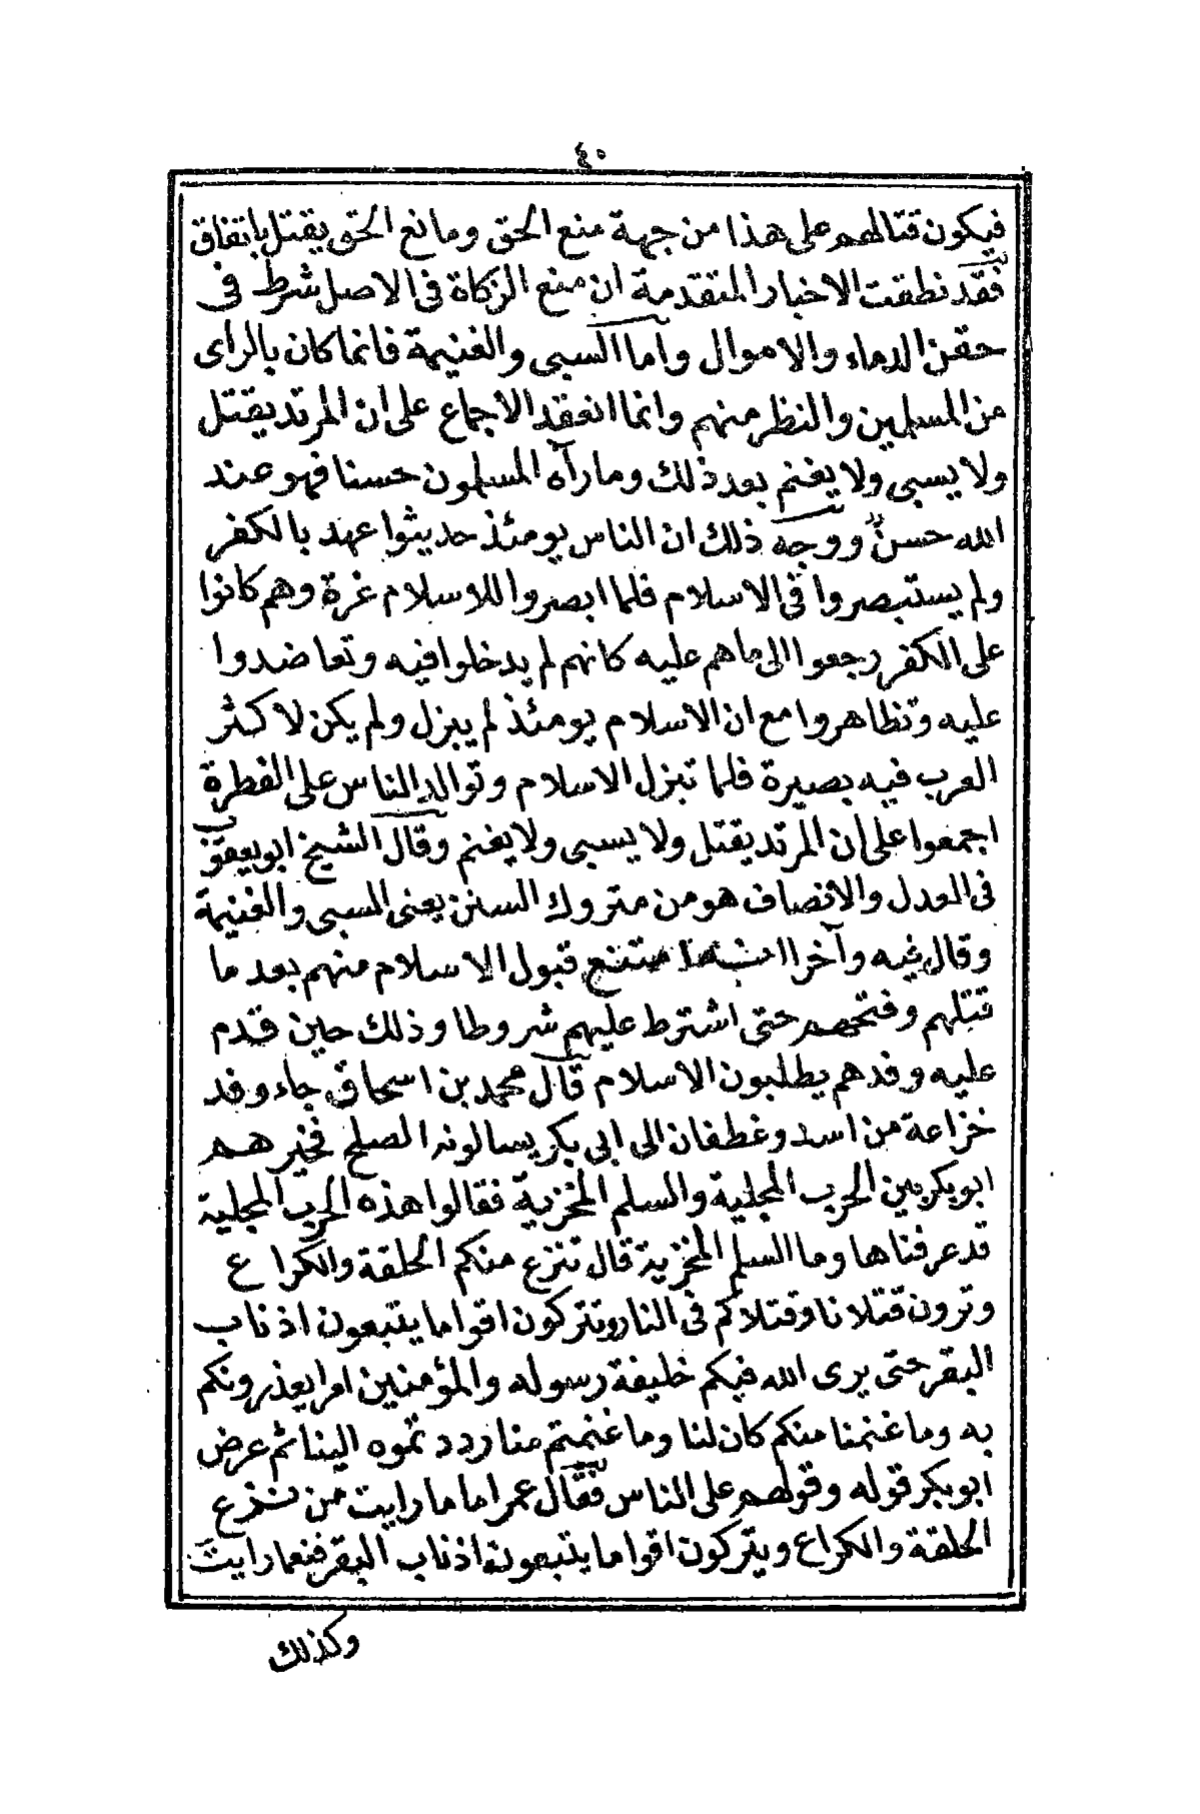 ٤٠
فيكون قتالهم على هذا من جهة منع الحق ومانع الحق يقتل باتفاق
فقد نطقت الاخبار المتقدمة ان منع الزكاة فى الاصل شرط فى
حقن الدماء والاموال واما السبى والغنيمة فانما كان بالراى
من المسلمين والنظر منهم وانما انعقد الاجماع على ان المرتد يقتل
ولا يسبى ولا يغنم بعد ذلك وما رآه المسلمون حسنا فهو عند
الله حسن ووجه ذلك ان الناس يومئذ حديثوا عهد بالكفر
ولم يستبصروا فى الاسلام فلما ابصروا للاسلام غرة وهم كانوا
على الكفر رجعوا الى ما هم عليه كانهم لم يدخلوا فيه وتعاضدوا
عليه وتظاهروا مع ان الاسلام يومئذ لم يبزل ولم يكن لاكثر
العرب فيه بصيرة فلما تبزل الاسلام وتوالد الناس على الفطرة
اجمعوا على ان المرتد يقتل ولا يسبى ولا يغنم وقال الشيخ ابو يعقوب
فى العدل والانصاف هو من متروك السنن يعنى السبى والغنيمة
وقال غيه وآخرا امتنع قبول الاسلام منهم بعد ما
قتلهم وفتحهم حتى اشترط عليهم شروطا وذلك حين قدم
عليه وفدهم يطلبون الاسلام قال محمد بن اسحاق جاء وفد
خزاعة من اسد وغطفان الى ابى بكر يسالونه الصلح فخيرهم
ابو بكر بين الحرب المجلية والسلم المخزية فقالوا هذه الحرب المجلية
قد عرفناها وما السلم المخزية قال تنزع منكم الحلقة والكراع
وترون قتلانا وقتلاكم فى النار وتتركون اقواما يتبعون اذناب
البقر حتى يرى الله فيكم خليفة رسوله والمؤمنين امرا يعذرونكم
به وما غنمنا منكم كان لنا وما غنمتم منا رددتموه الينا ثم عرض
ابو بكر قوله وقولهم على الناس فقال عمر اما ما رايت من نزع
الحلقة والكراع ويتركون اقواما يتبعون اذناب البقر فنعما رايت
وكذلك